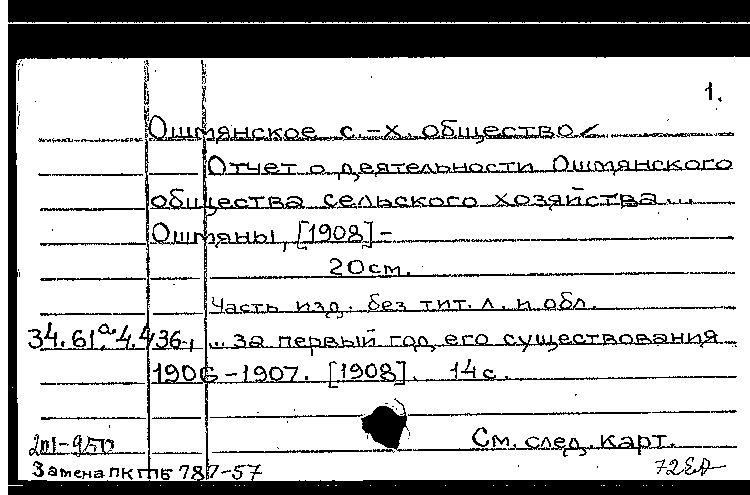 1.
Ошмянское с.-х. общество
Отчет о деятельности Ошмянского
общества сельского хозяйства...
Ошмяны, [1908]-
20 см.
Часть изд. без тит. л. и обл.
34.61а.4.436., ... за первый год его существования
1906-1907. [1908]. 14 с.
См. след. карт.
Замена ПК ГПБ 787-57